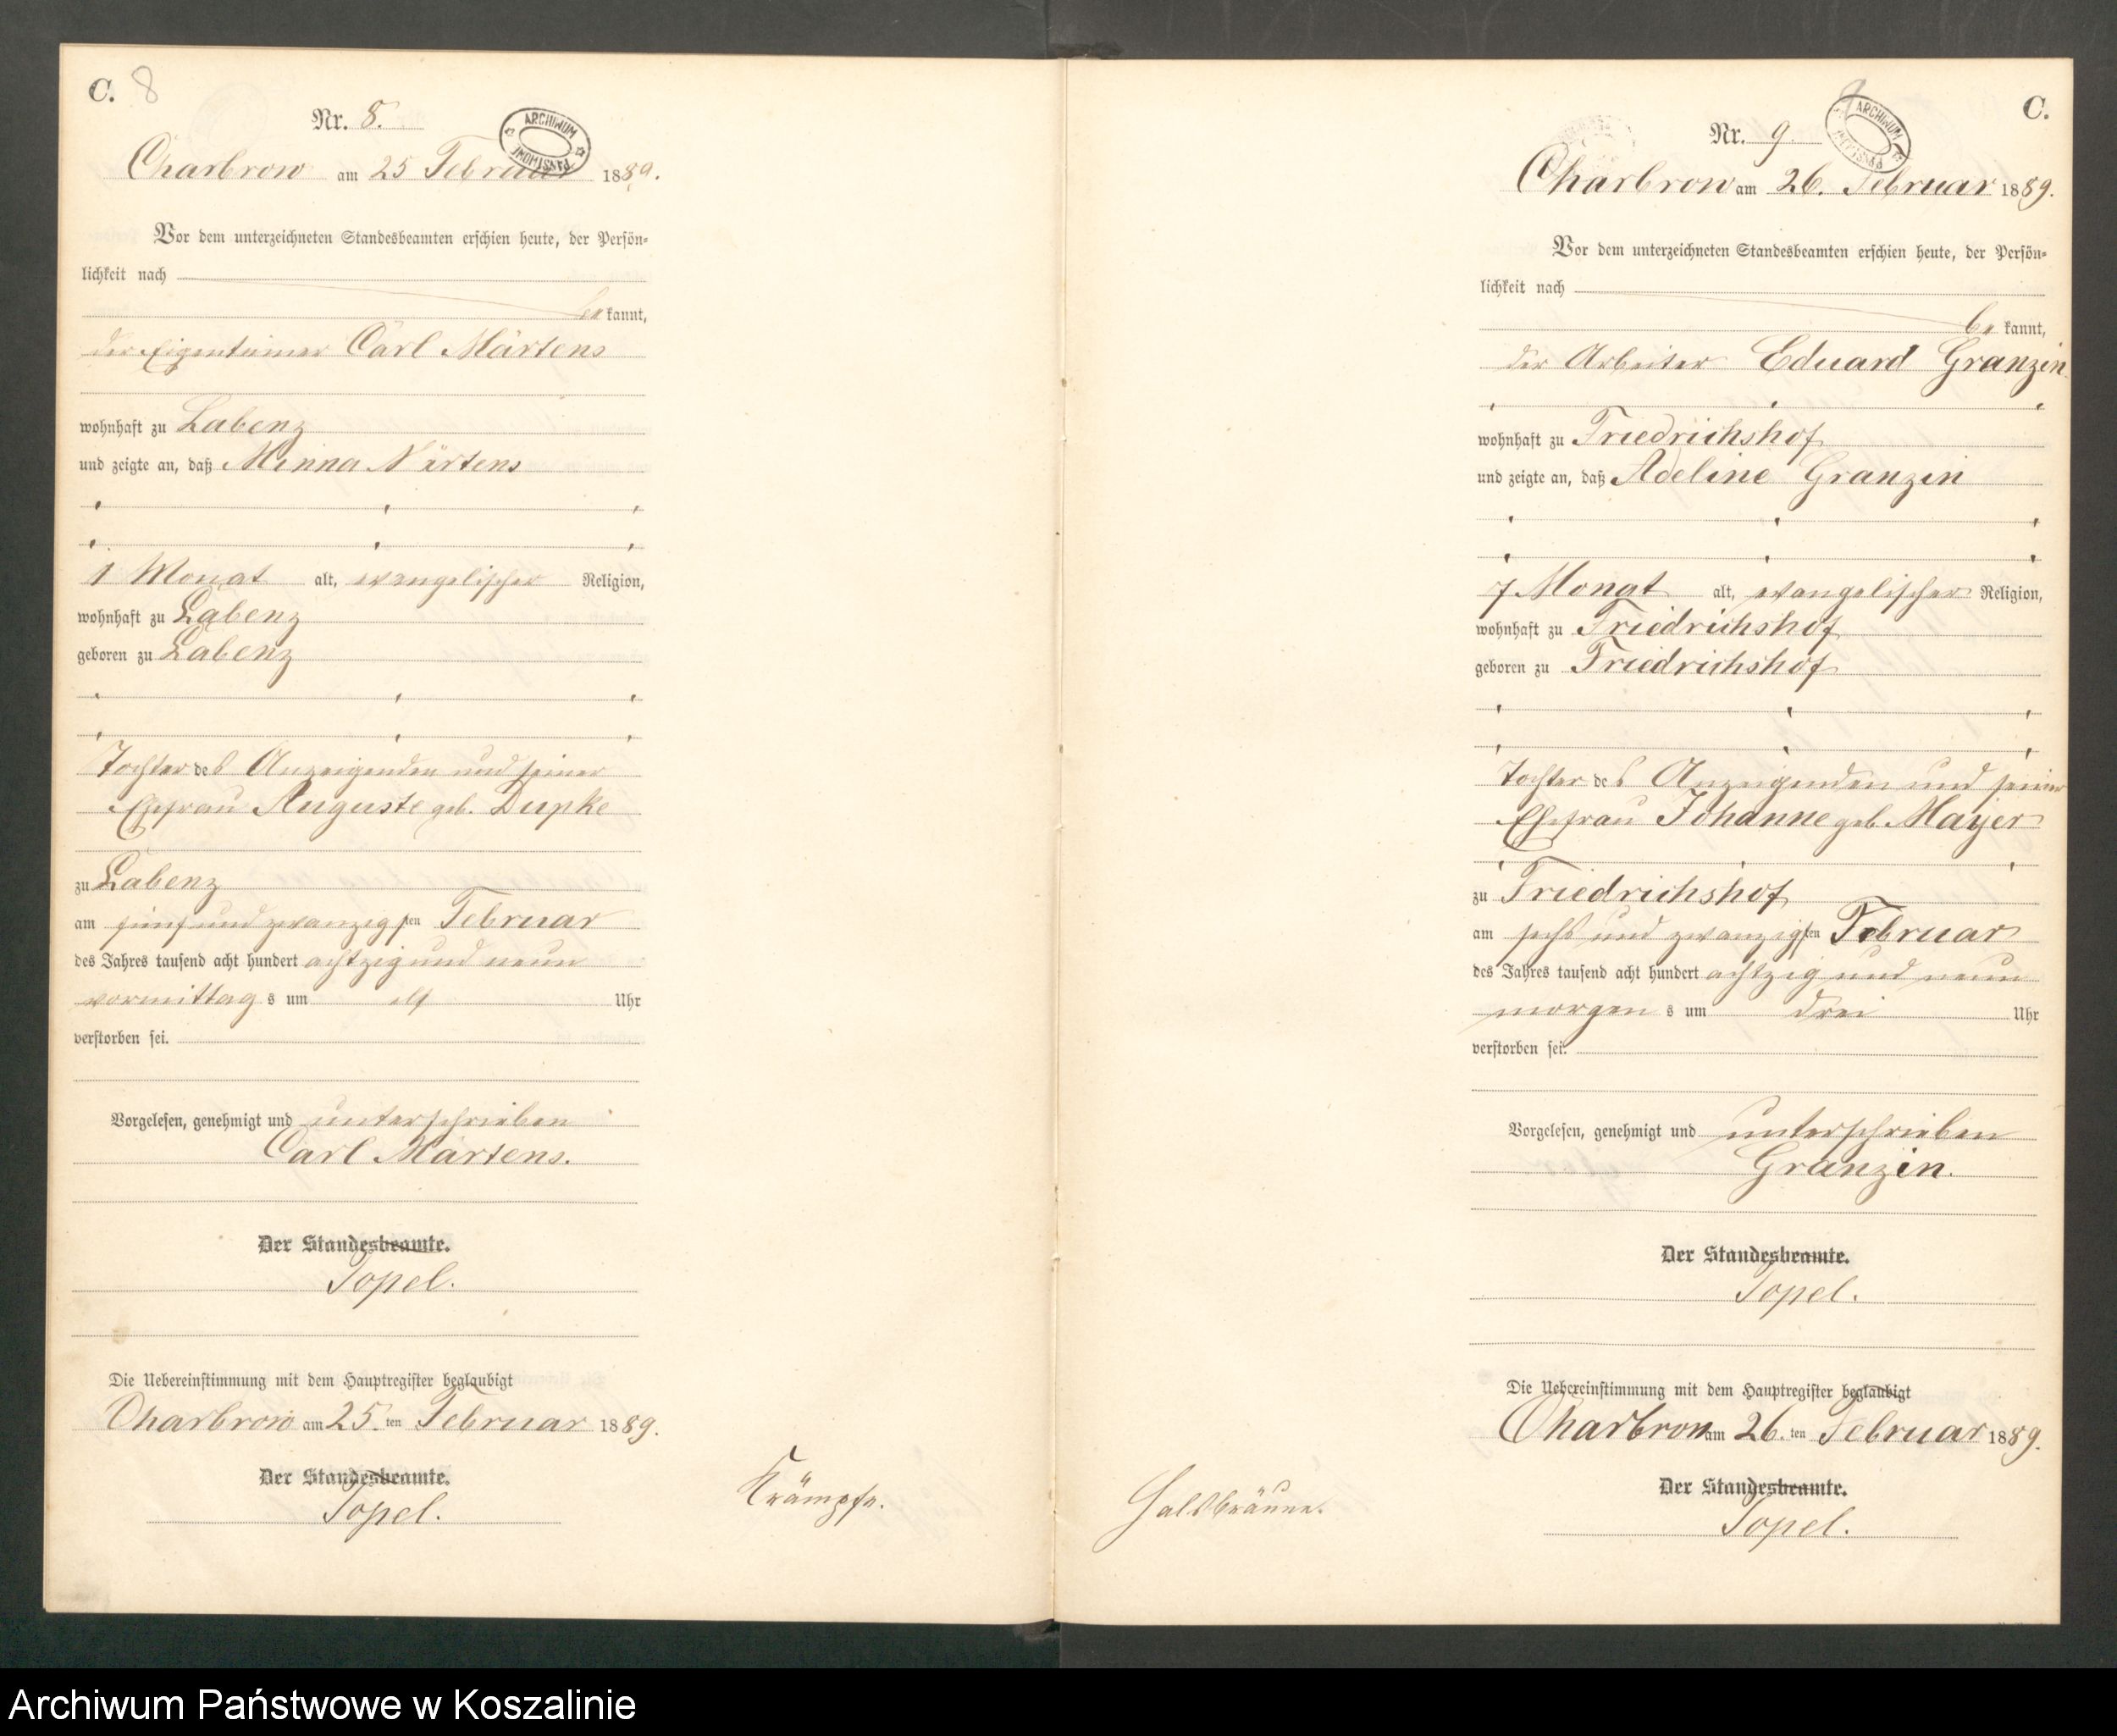 C. 8
Nr. 8.
ARCHIWUM PAŃSTWOWE
Charbrow am 25 Februar 1889.
Vor dem unterzeichneten Standesbeamten erschien heute, der Persön-
lichkeit nach
be kannt,
der Eigentümer Carl Märtens
wohnhaft zu Labenz
und zeigte an, daß Minna Märtens
1 Monat alt, evangelischer Religion,
wohnhaft zu Labenz
geboren zu Labenz
Tochter des Anzeigenden und seiner
Ehefrau Auguste geb. Dupke
zu Labenz
am fünf und zwanzigsten Februar
des Jahres tausend acht hundert achtzig und neun
vormittag s um elf Uhr
verstorben sei.
Vorgelesen, genehmigt und unterschrieben
Carl Märtens.
Der Standesbeamte.
Topel.
Die Uebereinstimmung mit dem Hauptregister beglaubigt
Charbrow am 25. ten Februar 1889.
Der Standesbeamte.
Topel.
Krämpfe.
9
C.
Nr. 9.
ARCHIWUM PAŃSTWOWE
Charbrow am 26. Februar 1889.
Vor dem unterzeichneten Standesbeamten erschien heute, der Persön-
lichkeit nach
be kannt,
der Arbeiter Eduard Granzin
wohnhaft zu Friedrichshof
und zeigte an, daß Adeline Granzin
7 Monat alt, evangelischer Religion,
wohnhaft zu Friedrichshof
geboren zu Friedrichshof
Tochter des Anzeigenden und seiner
Ehefrau Johanne geb. Mayer
zu Friedrichshof
am sechs und zwanzigsten Februar
des Jahres tausend acht hundert achtzig und neun
morgen s um drei Uhr
verstorben sei.
Vorgelesen, genehmigt und unterschrieben
Granzin.
Der Standesbeamte.
Topel.
Die Uebereinstimmung mit dem Hauptregister beglaubigt
Charbrow am 26. ten Februar 1889.
Der Standesbeamte.
Topel.
Halsbräune.
Archiwum Państwowe w Koszalinie